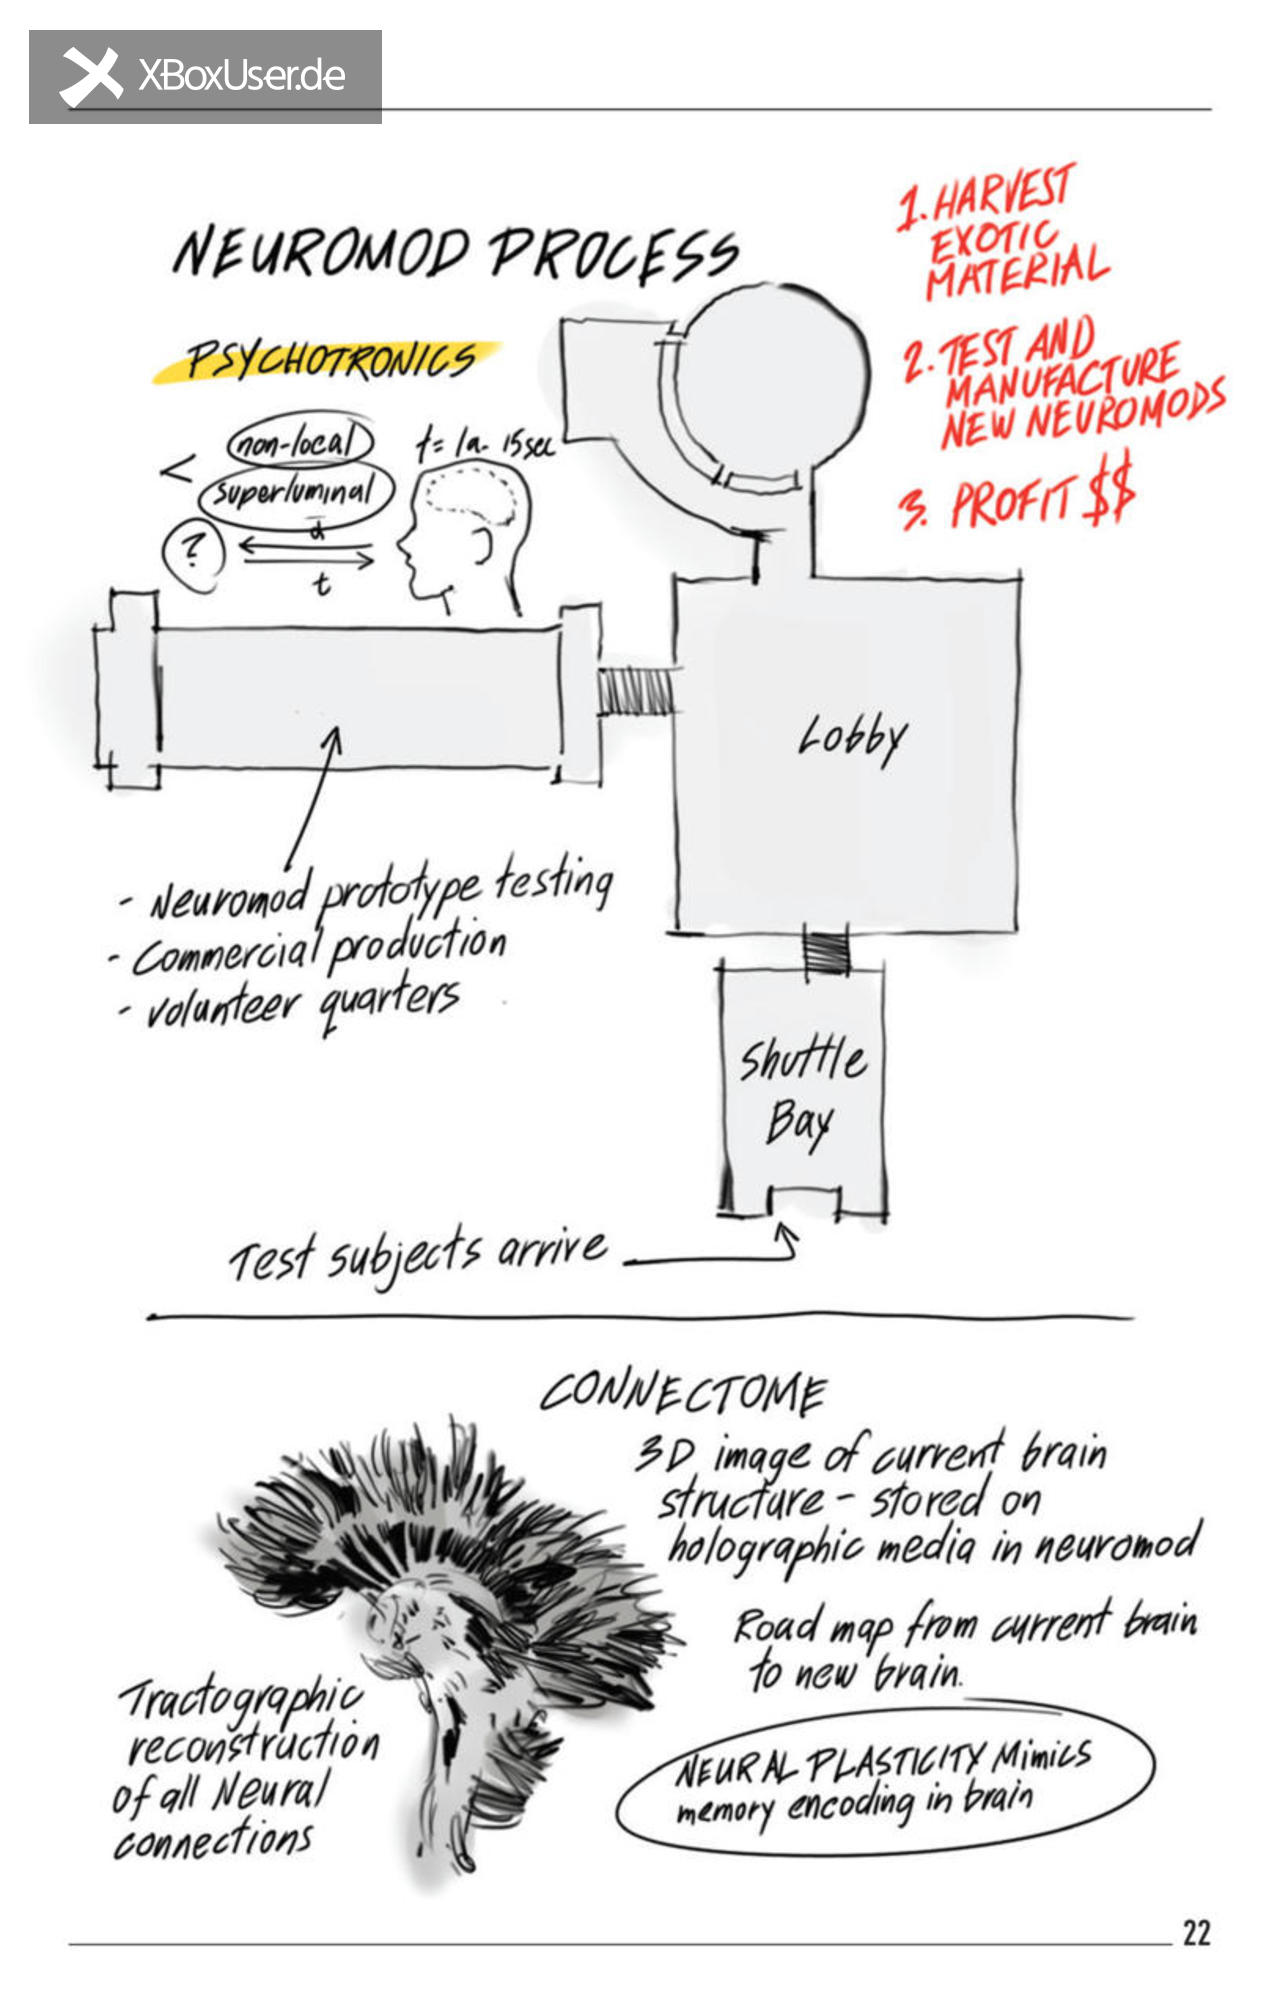 XBoxUser.de
NEUROMOD PROCESS
1. HARVEST
EXOTIC
MATERIAL
2. TEST AND
MANUFACTURE
NEW NEUROMODS
3. PROFIT $$
PSYCHOTRONICS
non-local
superluminal
<
?
d
t
Lobby
- Neuromod prototype testing
- Commercial production
- volunteer quarters
Shuttle
Bay
Test subjects arrive
CONNECTOME
3D image of current brain
structure - stored on
holographic media in neuromod
Road map from current brain
to new brain.
Tractographic
reconstruction
of all Neural
connections
NEURAL PLASTICITY Mimics
memory encoding in brain
22